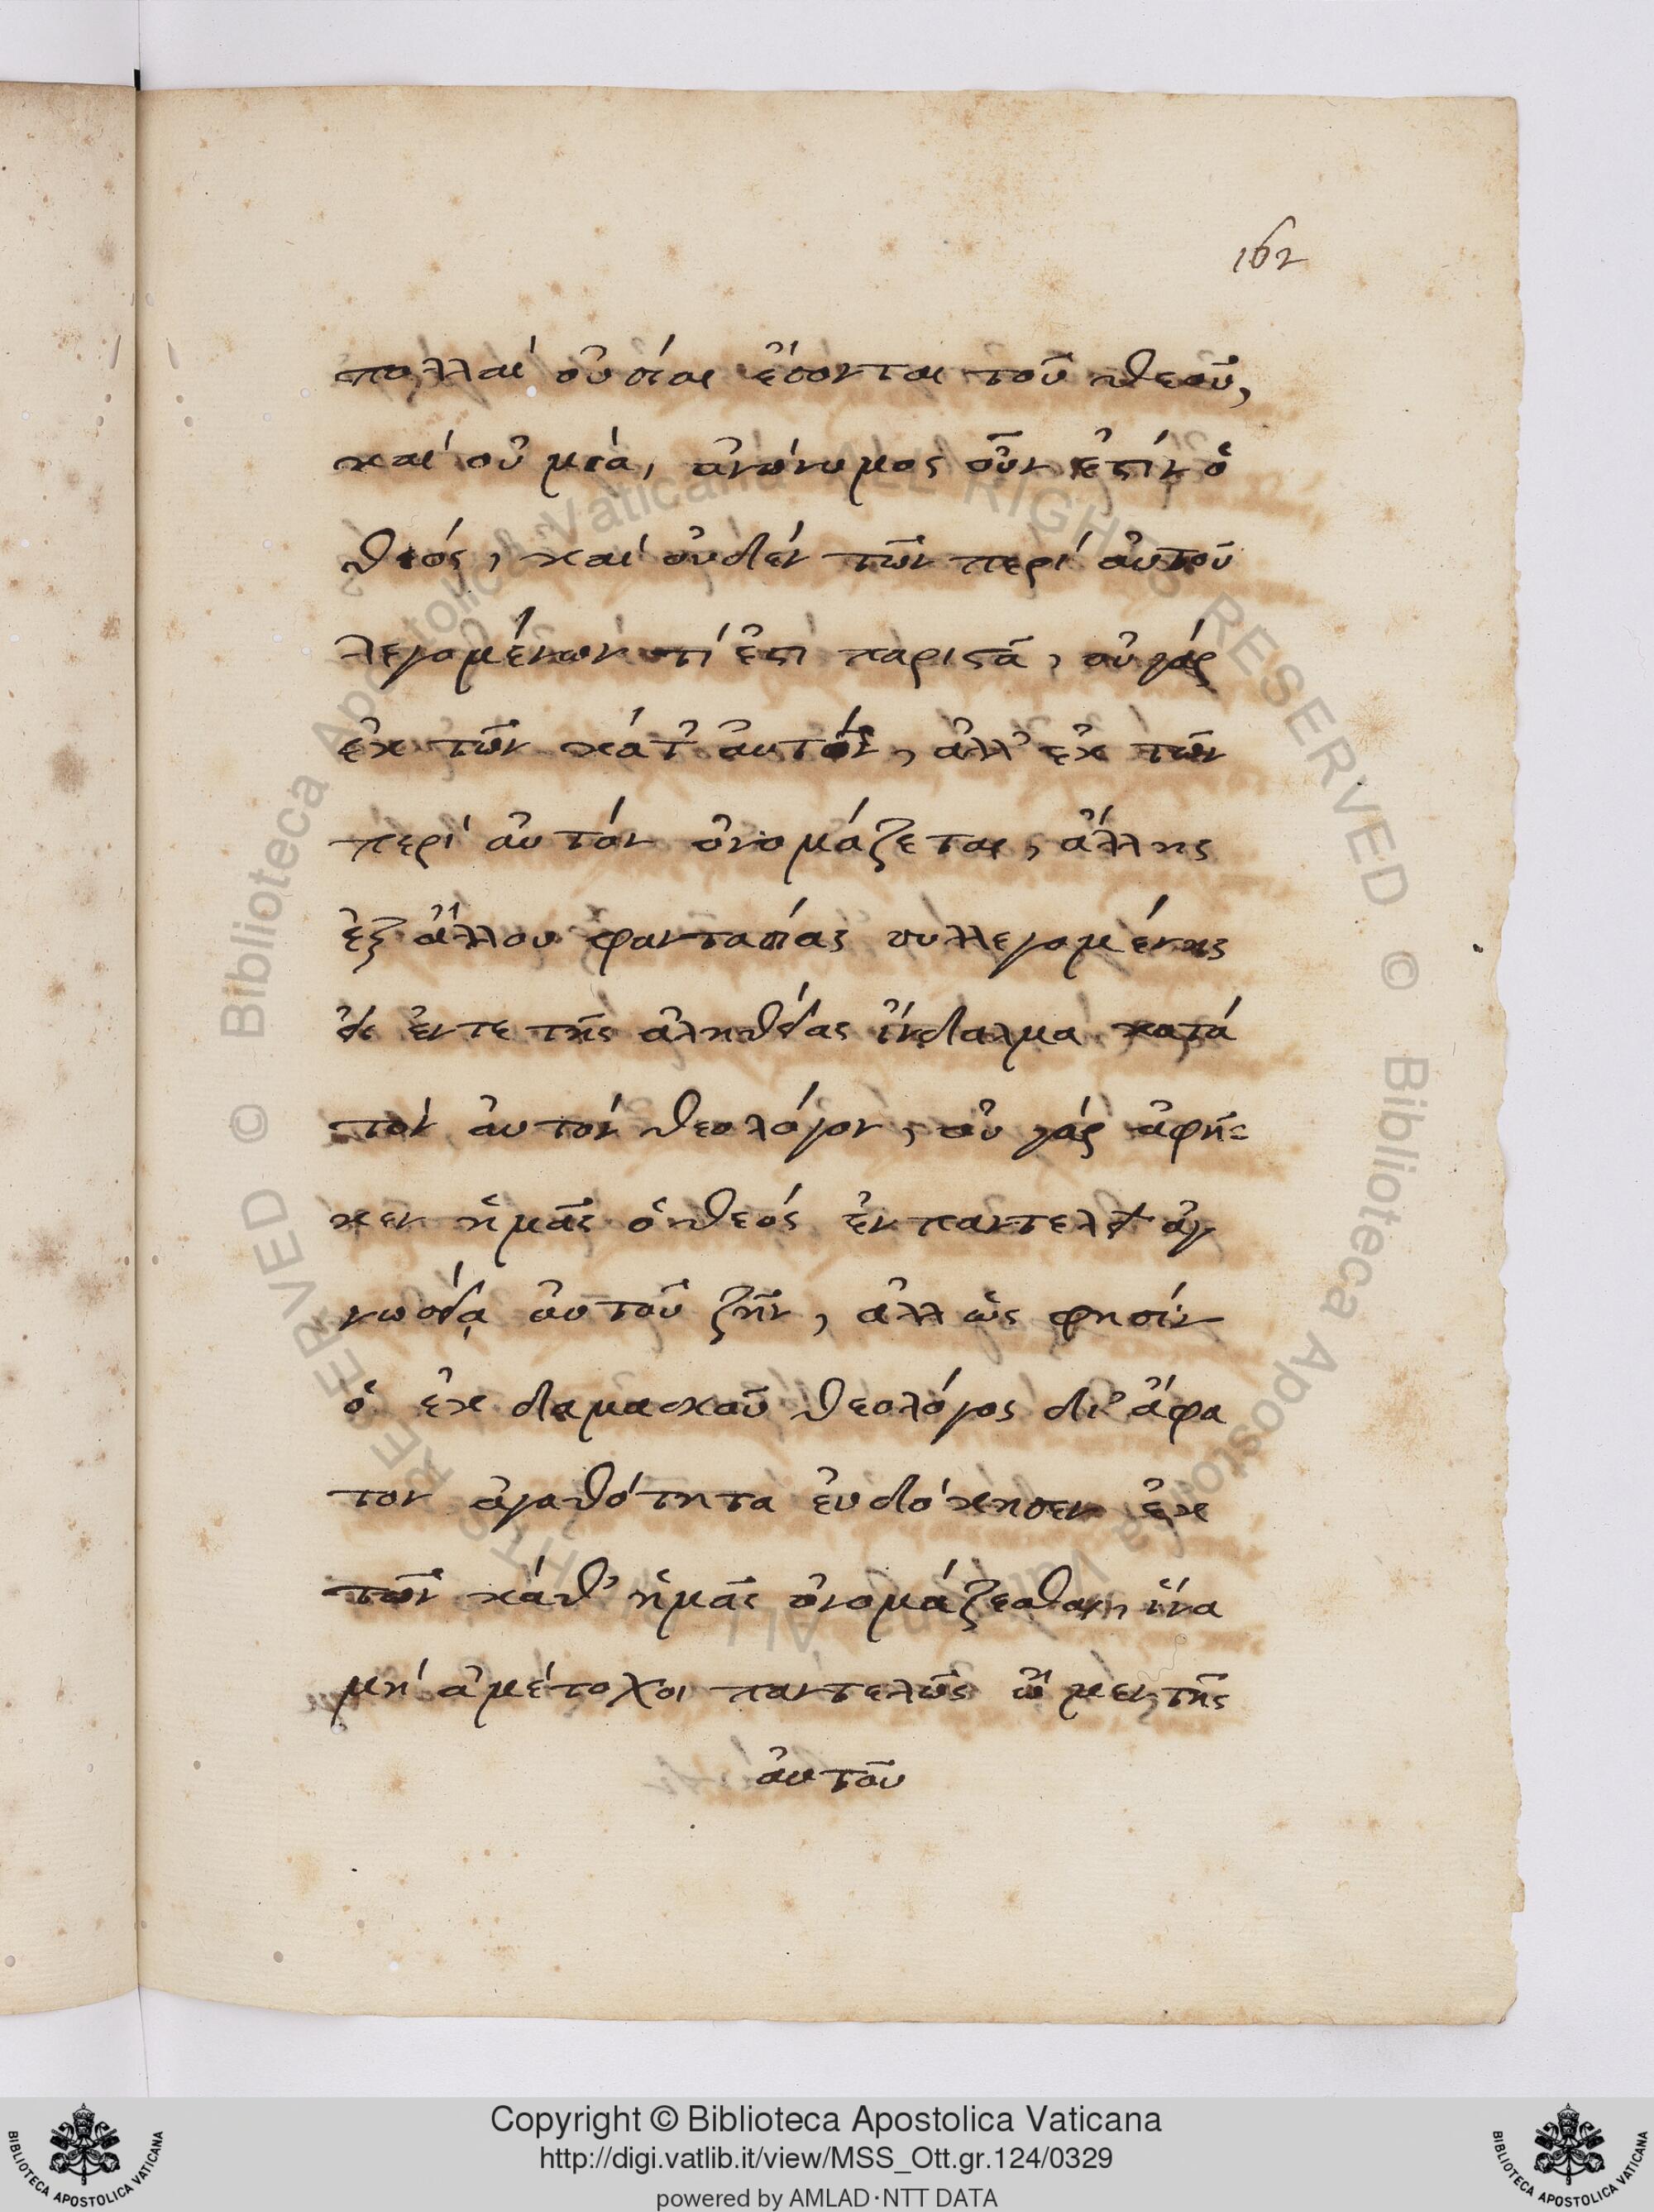 162
πολλαί οὐσίαι ἔσονται τοῦ θεοῦ,
καί οὐ μία, ἀνώνυμος οὖν ἐστίν ὁ
θεός, καί οὐδέν τῶν περί αὐτοῦ
λεγομένων τί ἐστι παριστᾶ, οὐ γάρ
ἐκ τῶν κάτ' ἀυτόν, ἀλλ' ἐκ τῶν
περί αὐτόν ὀνομάζεται, ἄλλης
ἐξ ἄλλου φαντασίας συλλεγομένης
εἰς ἕν τε τῆς ἀληθείας ἴνδαλμα κατά
τόν ἀυτόν θεολόγον, οὐ γάρ ἀφῆ=
κεν ἡμᾶς ὁ θεός ἐν παντελεῖ ἀγ
νωσίᾳ ἀυτοῦ ζῆν, ἀλλ ὡς φησίν
ὁ ἐκ δαμασκοῦ θεολόγος δι' ἄφα
τον ἀγαθότητα ἐυδόκησεν ἐκ
τῶν κάθ' ἡμᾶς ὀνομάζεσθαι, ἵνα
μή ἀμέτοχοι παντελῶς ὦμεν τῆς
ἀυτοῦ
© Biblioteca Apostolica Vaticana ALL RIGHTS RESERVED
Copyright © Biblioteca Apostolica Vaticana
http://digi.vatlib.it/view/MSS_Ott.gr.124/0329
powered by AMLAD·NTT DATA
BIBLIOTECA APOSTOLICA VATICANA
BIBLIOTECA APOSTOLICA VATICANA